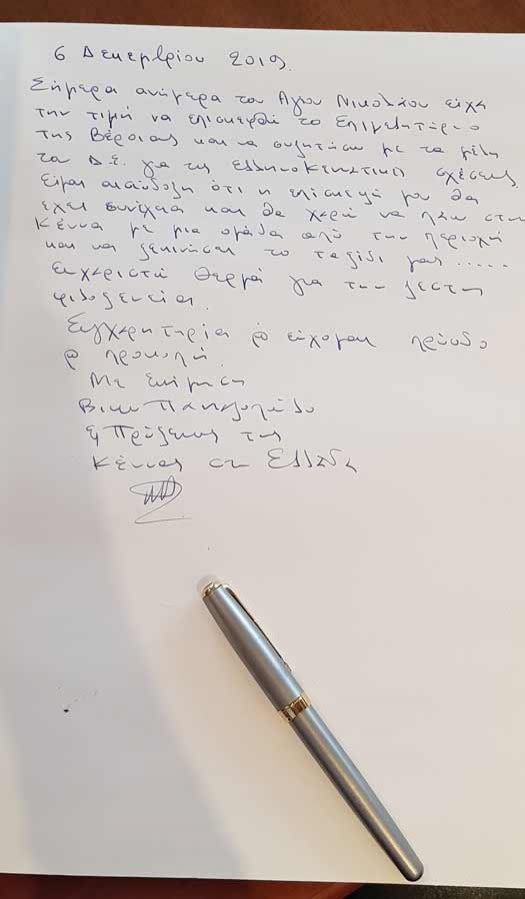 6 Δεκεμβρίου 2019.
Σήμερα ανήμερα του Αγίου Νικολάου είχα
την τιμή να επισκεφθώ το Επιμελητήριο
της Βέροιας και να συζητήσω με τα μέλη
του Δ.Σ. για τις ελληνοκενυατικές σχέσεις
Είμαι αισιόδοξη ότι η επίσκεψή μου θα
έχει συνέχεια και θα χαρώ να πάω στην
Κένυα με μια ομάδα από την περιοχή
και να ξεκινήσει το ταξίδι μας.....
Ευχαριστώ θερμά για την ζεστή
φιλοξενεία.
Συγχαρητήρια & εύχομαι πρόοδο
& προκοπή
Με εκτίμηση
Βίκυ Πανταζοπούλου
η Πρόξενος της
Κένυας στην Ελλάδα